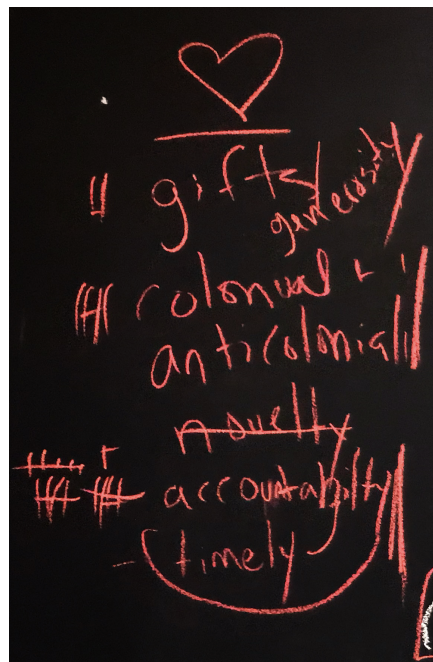 gifts/
generosity
colonial +
anticolonial
novelty
accountability
timely